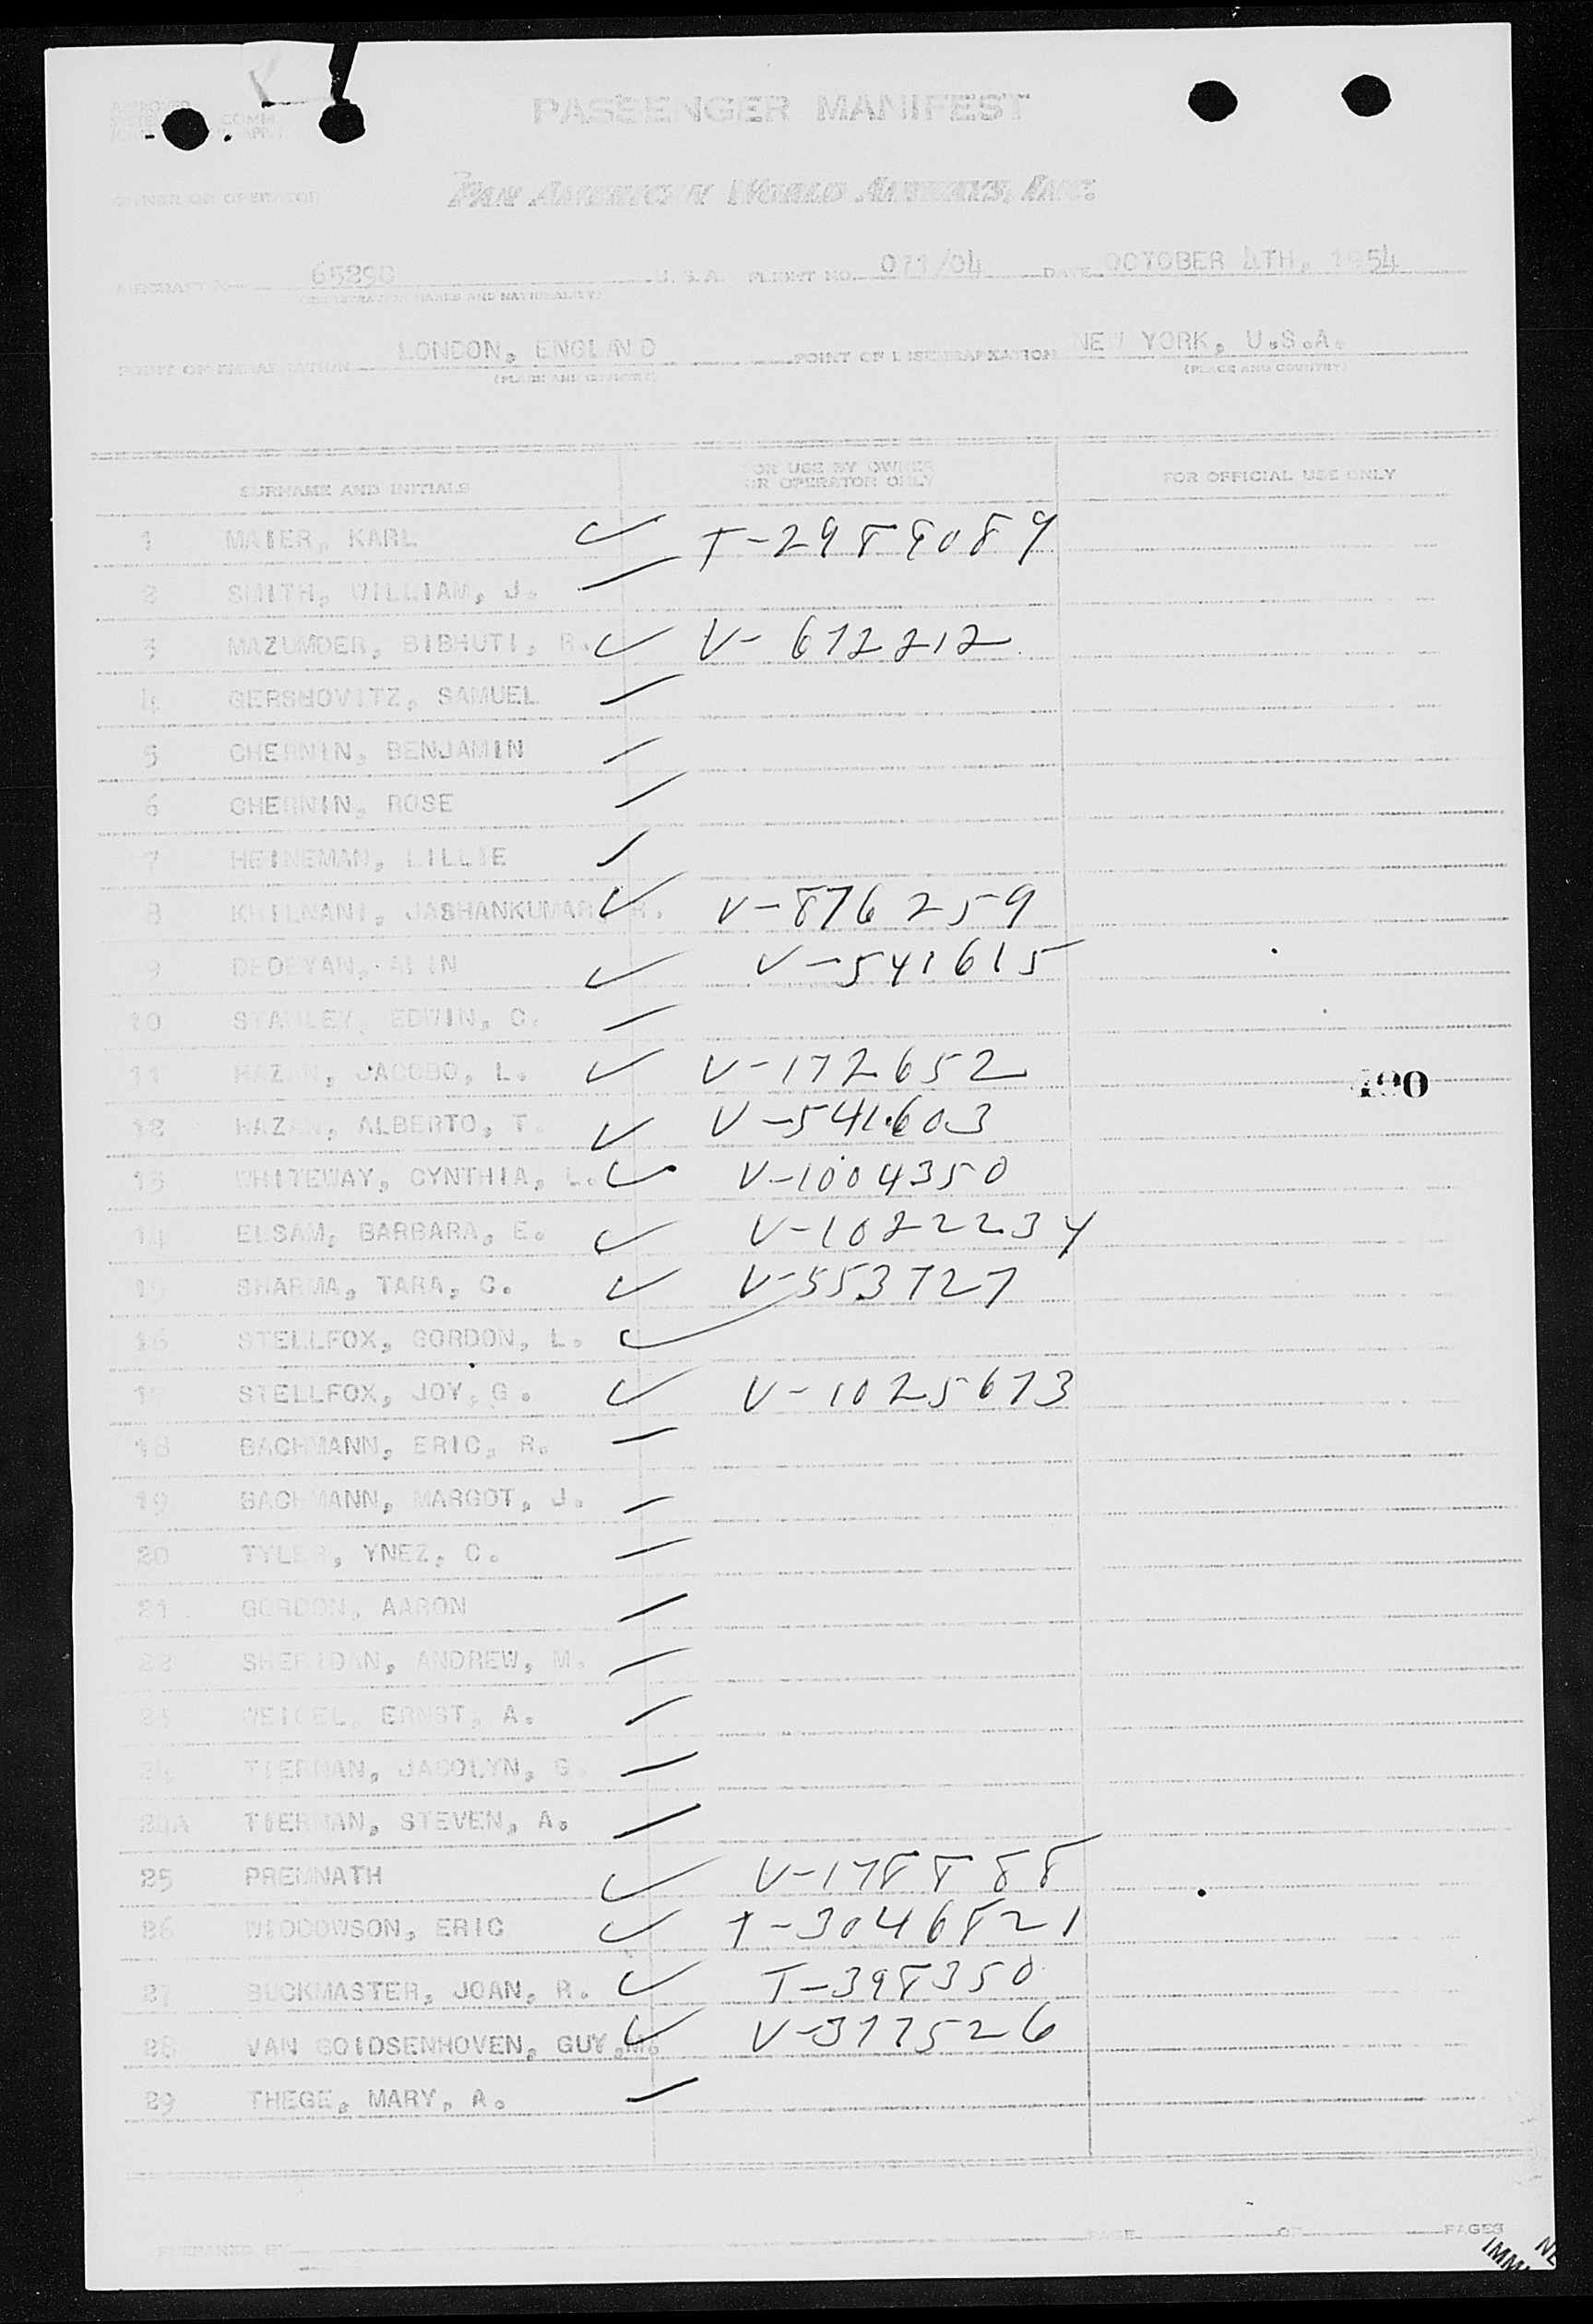 PASSENGER MANIFEST
OWNER OR OPERATOR PAN AMERICAN WORLD AIRWAYS, INC.
U.S.A. FLIGHT NO. 071/04 DATE OCTOBER 4TH, 1954
(REGISTRATION MARKS AND NATIONALITY)
POINT OF EMBARKATION LONDON, ENGLAND POINT OF DISEMBARKATION NEW YORK, U.S.A.
(PLACE AND COUNTRY) (PLACE AND COUNTRY)
SURNAME AND INITIALS FOR USE BY OWNER OR OPERATOR ONLY FOR OFFICIAL USE ONLY
1 MAIER, KARL T-2988089
2 SMITH, WILLIAM, J.
3 MAZUMDER, BIBHUTI, R. V-672212
4 GERSHOVITZ, SAMUEL
5 CHERNIN, BENJAMIN
6 CHERNIN, ROSE
7 HEINEMAN, LILLIE
8 KHILNANI, JASHANKUMAR V-876259
9 DEDEYAN, ALIN V-541615
10 STANLEY, EDWIN, C.
11 HAZAN, JACOBO, L. V-172652
12 HAZAN, ALBERTO, T. V-541603
13 WHITEWAY, CYNTHIA, L. V-1004350
14 ELSAM, BARBARA, E. V-1022234
15 SHARMA, TARA, C. V-553727
16 STELLFOX, GORDON, L.
17 STELLFOX, JOY, G. V-1025673
18 BACHMANN, ERIC, R.
19 BACHMANN, MARGOT, J.
20 TYLER, YNEZ, C.
21 GORDON, AARON
22 SHERIDAN, ANDREW, M.
23 WEIGEL, ERNST, A.
24 TIERNAN, JACOLYN, G
24A TIERNAN, STEVEN, A.
25 PREMNATH V-178888
26 WIDDOWSON, ERIC T-3046821
27 BUCKMASTER, JOAN, R. T-398350
28 VAN GOIDSENHOVEN, GUY, M. V-377526
29 THEGE, MARY, A.
PREPARED BY PAGE OF PAGES